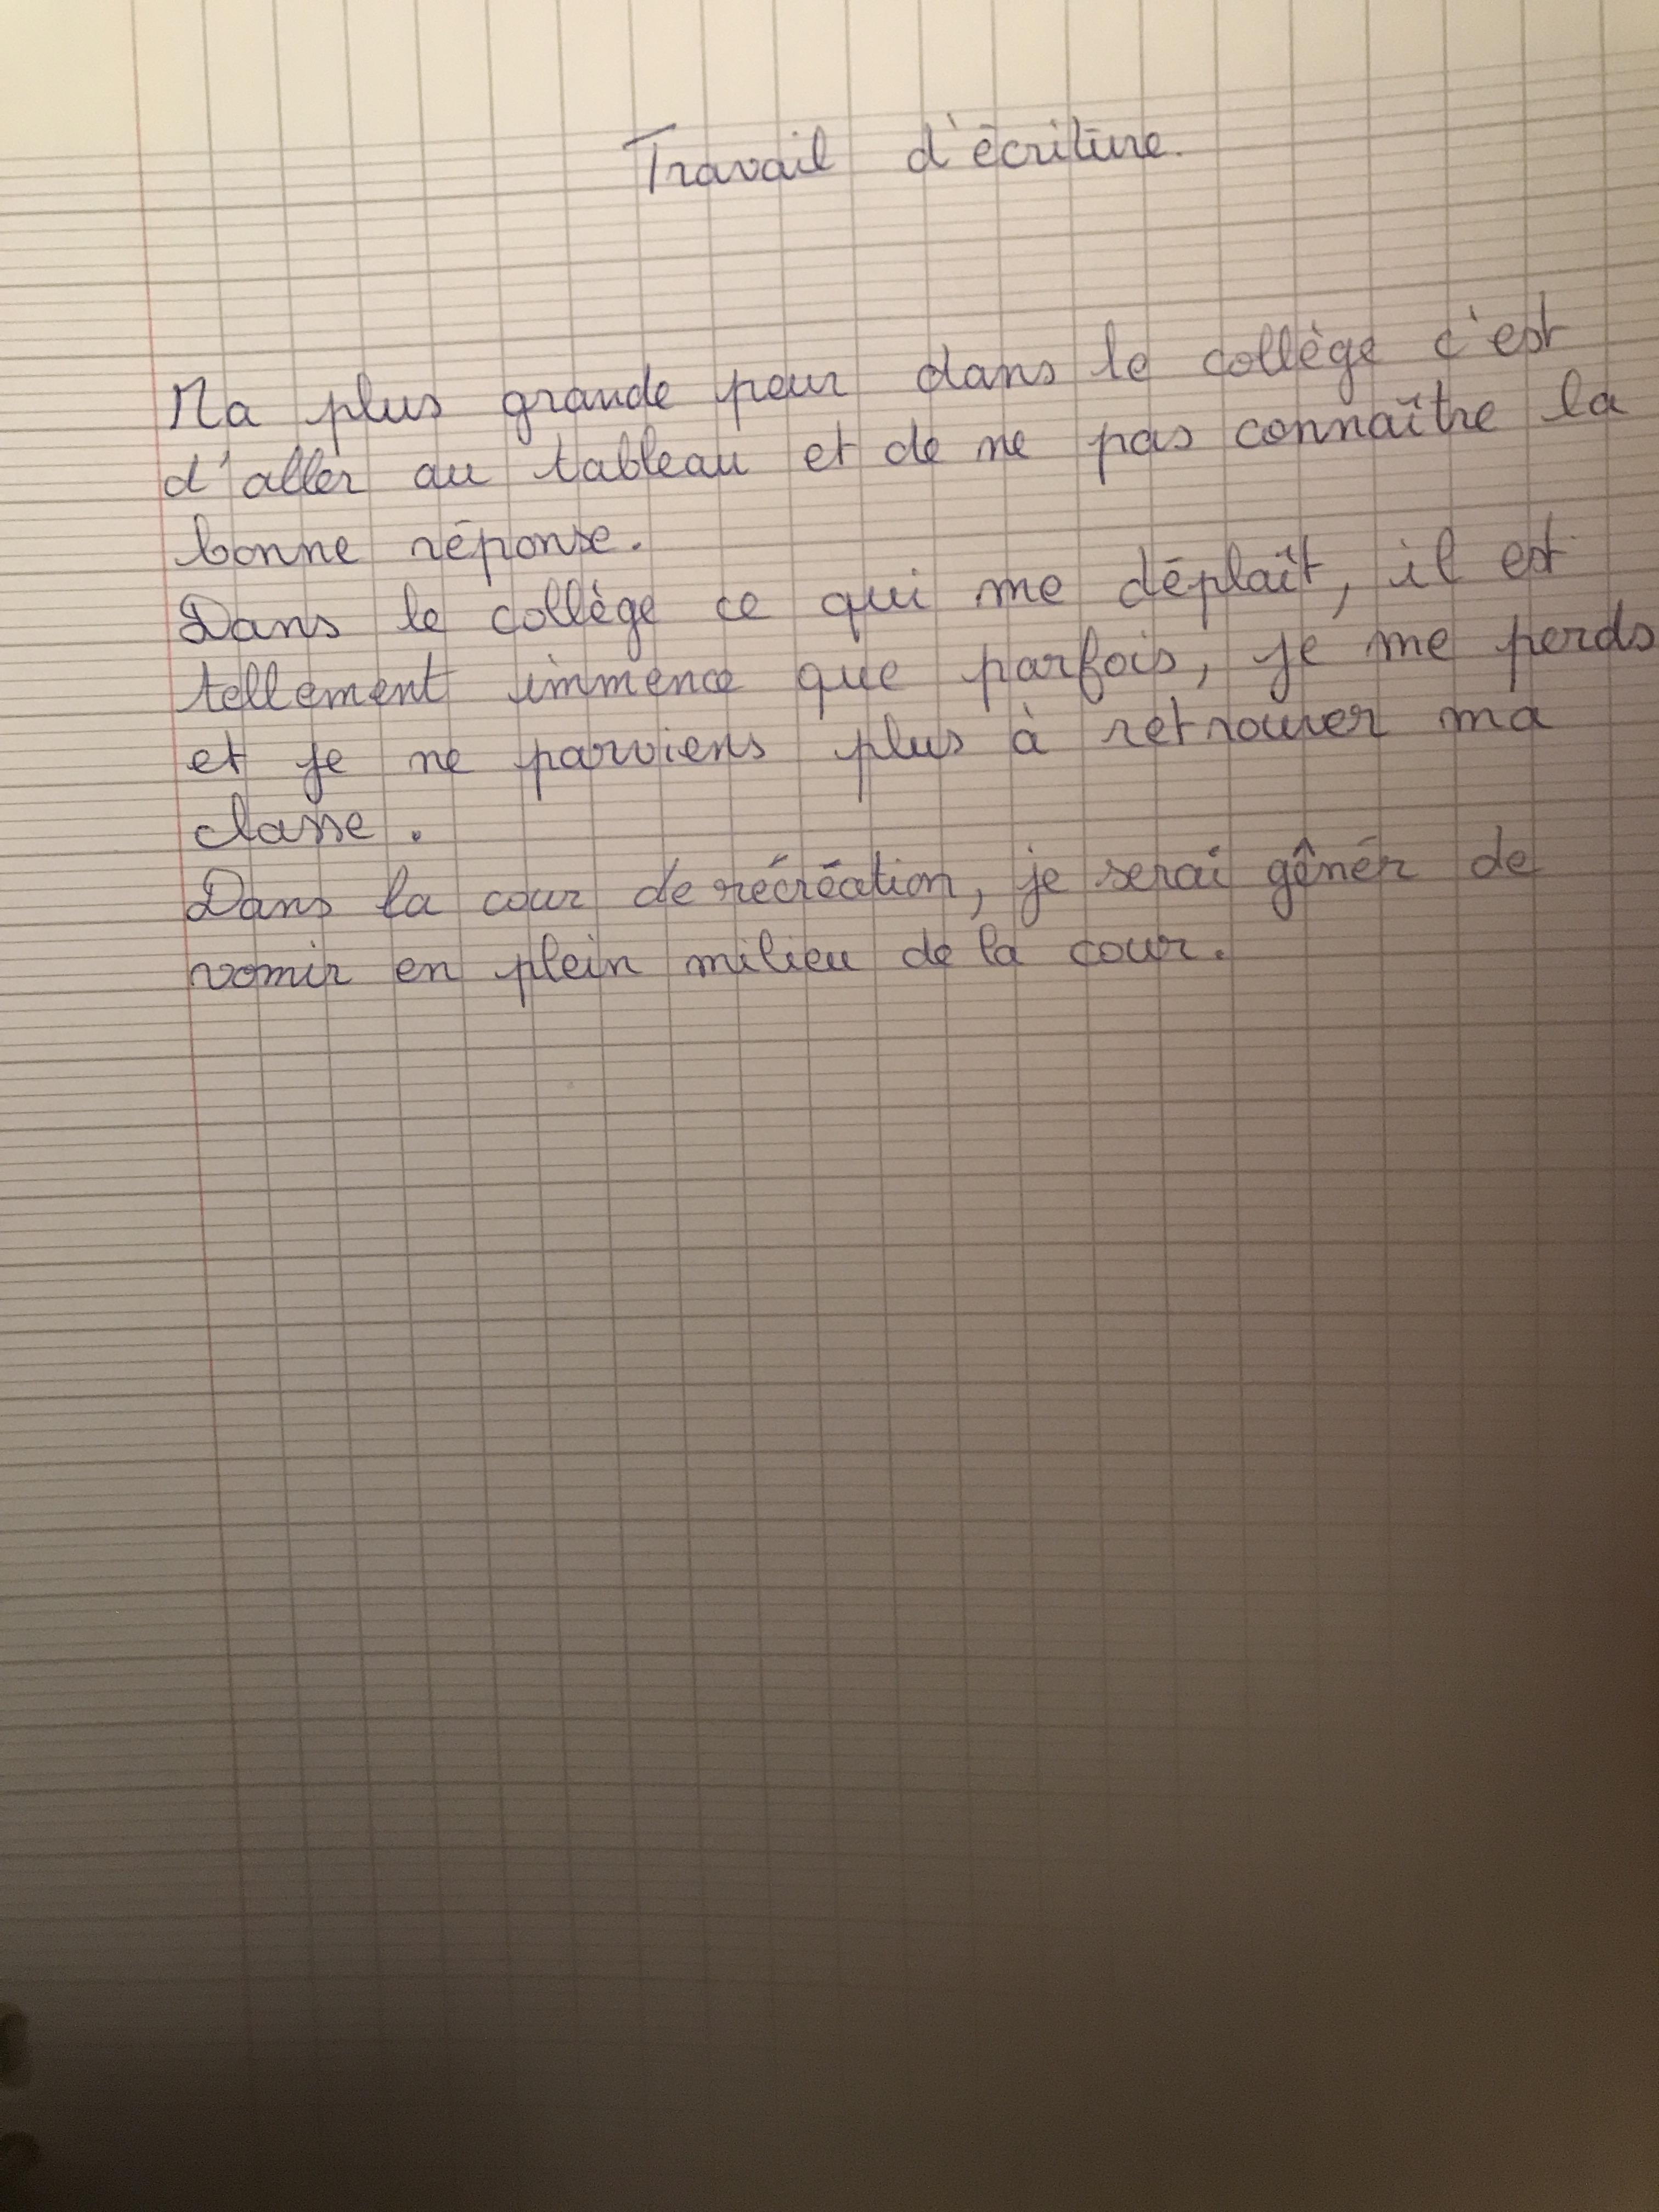 Travail d'écriture.
Ma plus grande peur dans le collège c'est
d'aller au tableau et de ne pas connaître la
bonne réponse.
Dans le collège ce qui me déplaît, il est
tellement immence que parfois, je me perds
et je ne parviens plus à retrouver ma
classe.
Dans la cour de récréation, je serai gênér de
vomir en plein milieu de la cour.